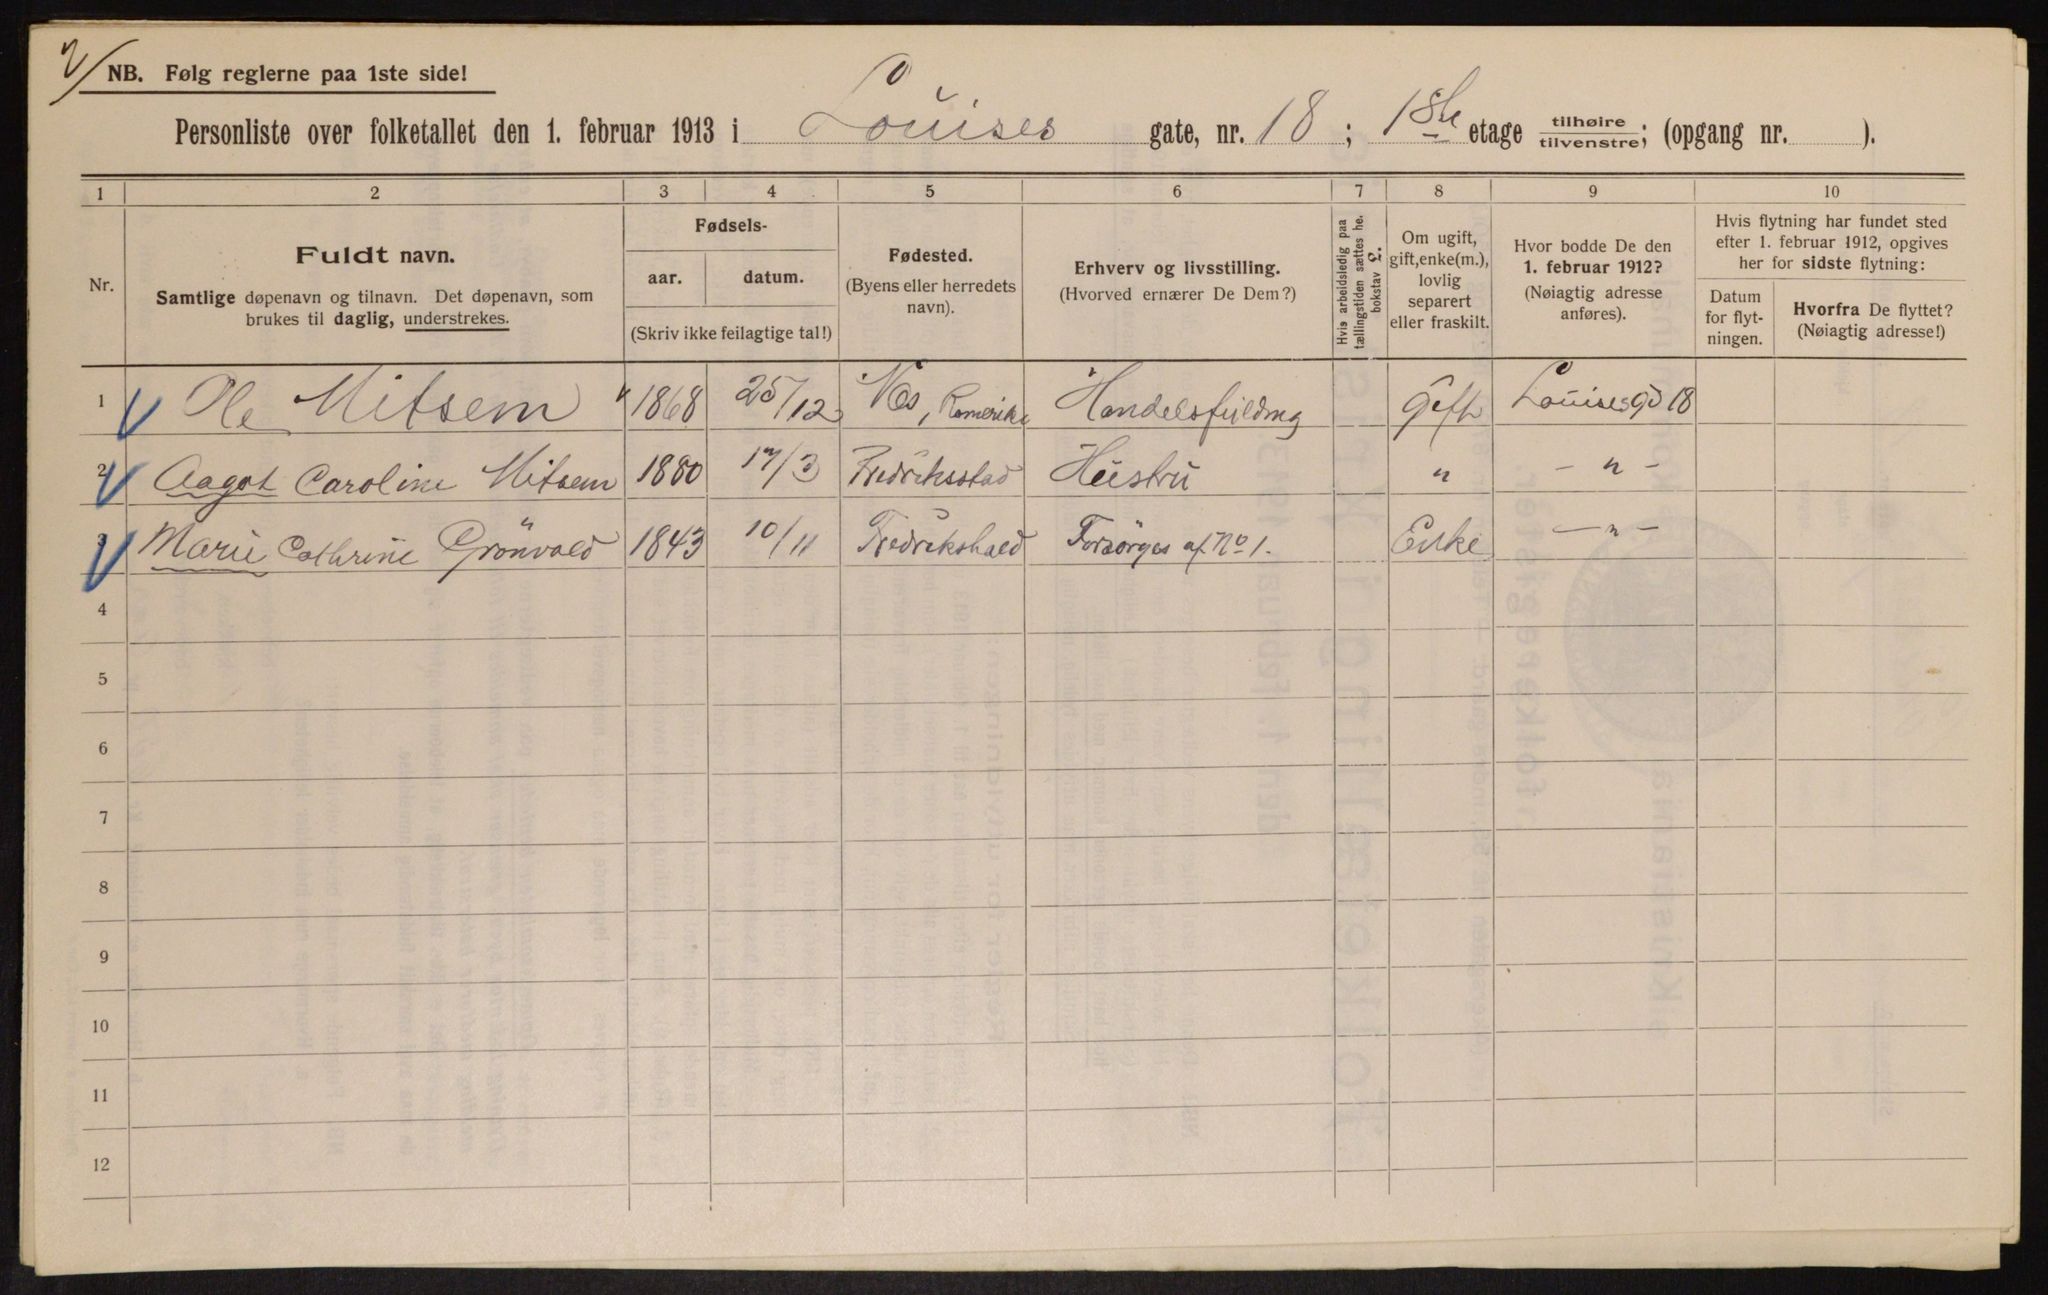 2/ NB. Følg reglerne paa 1ste side!
Personliste over folketallet den 1. februar 1913 i Louises gate, nr. 18 ; 1ste etage tilhøire / tilvenstre ; (opgang nr. ).
1 2 3 4 5 6 7 8 9 10
Nr.
Fuldt navn.
Samtlige døpenavn og tilnavn. Det døpenavn, som
brukes til daglig, understrekes.
Fødsels-
aar. datum.
(Skriv ikke feilagtige tal!)
Fødested.
(Byens eller herredets
navn).
Erhverv og livsstilling.
(Hvorved ernærer De Dem?)
Hvis arbeidsledig paa
tællingstiden sættes he.
bokstav L.
Om ugift,
gift, enke(m.),
lovlig
separert
eller fraskilt.
Hvor bodde De den
1. februar 1912?
(Nøiagtig adresse
anføres).
Hvis flytning har fundet sted
efter 1. februar 1912, opgives
her for sidste flytning:
Datum
for flyt-
ningen.
Hvorfra De flyttet?
(Nøiagtig adresse!)
1 Ole Mitsem 1868 25/12 Nes, Romerike Handelsfuldmg gift Louisesgd 18
2 Aagot Caroline Mitsem 1880 17/3 Fredriksstad Hustru " - " -
3 Marie Cathrine Grönvold 1843 10/11 Fredrikshald Forsörges af No 1. Enke - " -
4
5
6
7
8
9
10
11
12